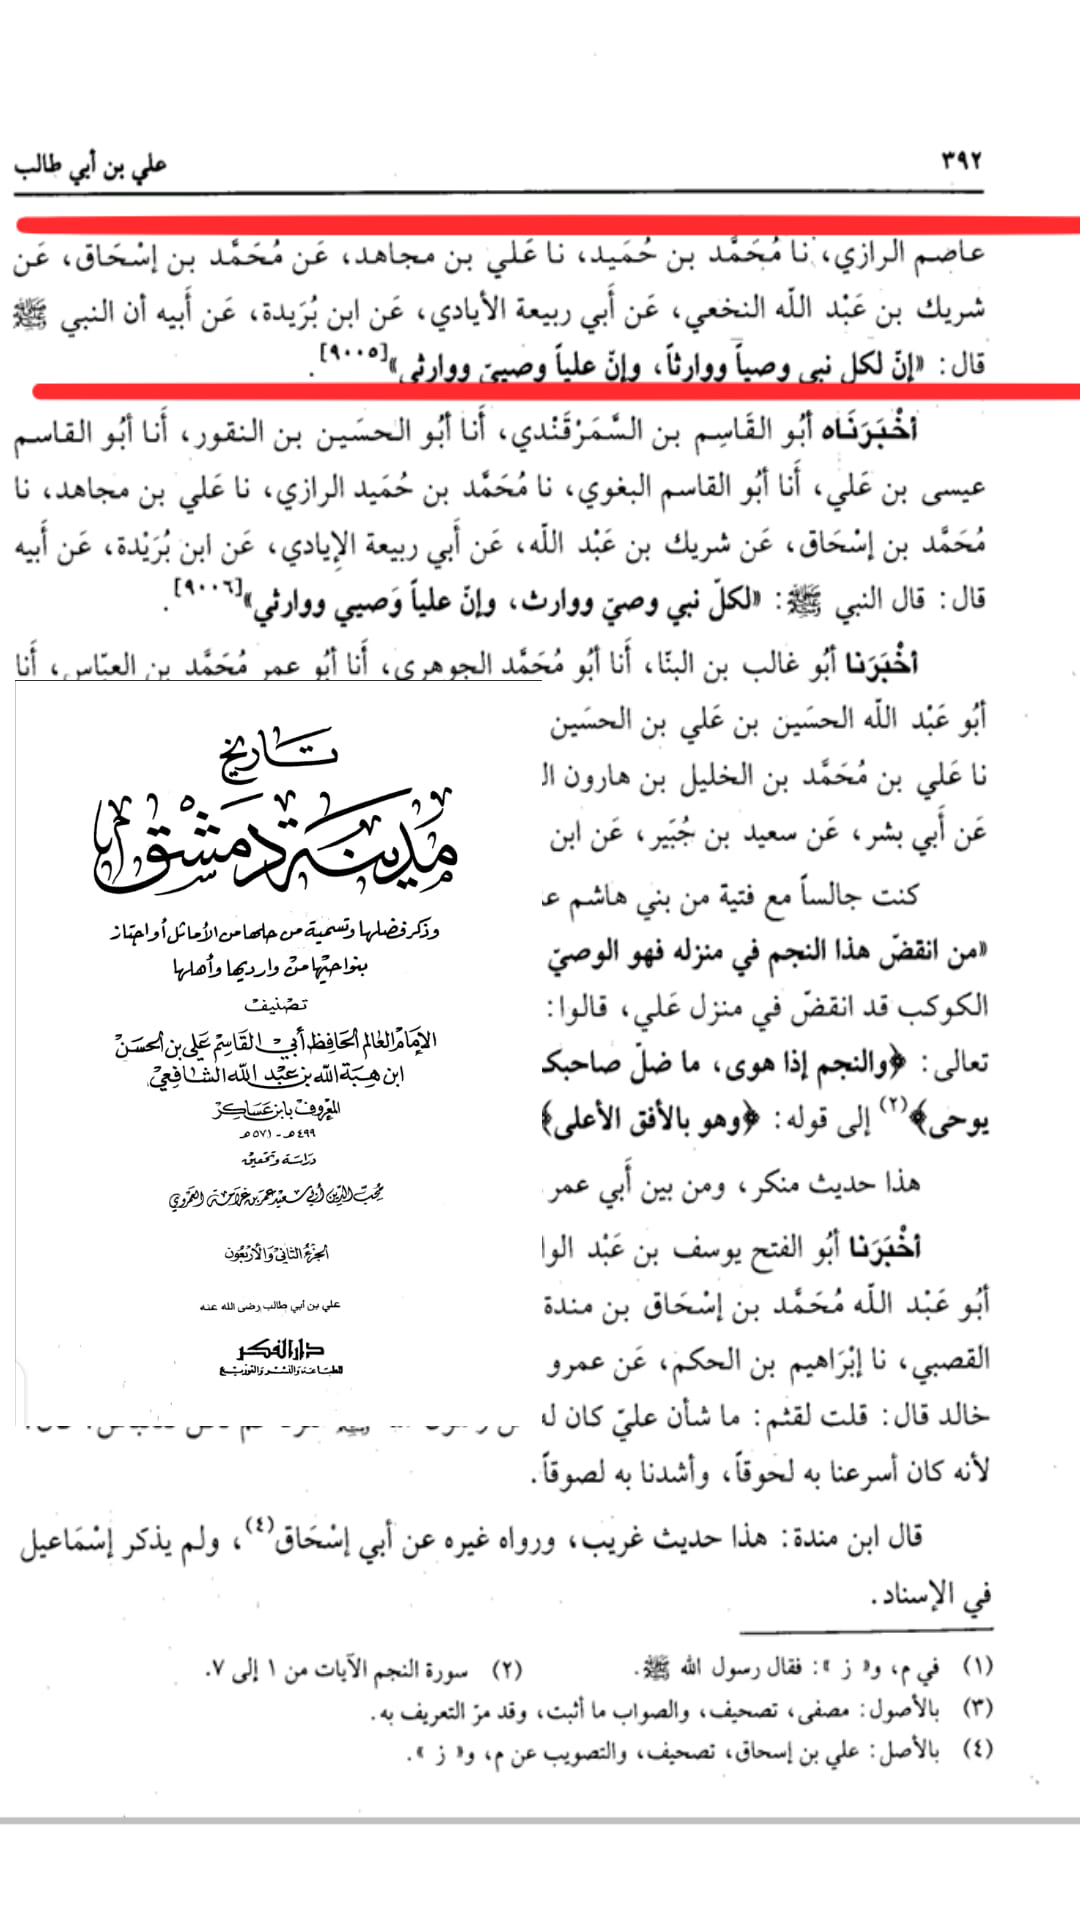 ٣٩٢
علي بن أبي طالب
عاصم الرازي، نا مُحَمَّد بن حُمَيد، نا عَلي بن مجاهد، عَن مُحَمَّد بن إسْحَاق، عَن
شريك بن عَبْد اللّه النخعي، عَن أَبي ربيعة الأيادي، عَن ابن بُرَيدة، عَن أَبيه أن النبي ﷺ
قال: «إنّ لكل نبي وصياً ووارثاً، وإنّ علياً وصيي ووارثي»[٩٠٠٥].
أخْبَرَنَاه أبُو القَاسِم بن السَّمَرْقَنْدي، أَنا أبُو الحسَين بن النقور، أَنا أبُو القاسم
عيسى بن عَلي، أَنا أبُو القاسم البغوي، نا مُحَمَّد بن حُمَيد الرازي، نا عَلي بن مجاهد، نا
مُحَمَّد بن إسْحَاق، عَن شريك بن عَبْد اللّه، عَن أَبي ربيعة الإيادي، عَن ابن بُرَيْدة، عَن أَبيه
قال: قال النبي ﷺ: «لكلّ نبي وصيّ ووارث، وإنّ علياً وَصيي ووارثي»[٩٠٠٦].
أخْبَرَنا أبُو غالب بن البنّا، أَنا أبُو مُحَمَّد الجوهري، أَنا أبُو عمر مُحَمَّد بن العبّاس، أَنا
أبُو عَبْد اللّه الحسَين بن عَلي بن الحسَين
نا عَلي بن مُحَمَّد بن الخليل بن هارون ال
عَن أَبي بشر، عَن سعيد بن جُبَير، عَن ابن
كنت جالساً مع فتية من بني هاشم عـ
«من انقضّ هذا النجم في منزله فهو الوصيّ
الكوكب قد انقضّ في منزل عَلي، قالوا:
تعالى: ﴿والنجم إذا هوى، ما ضلّ صاحبكـ
يوحى﴾(٢) إلى قوله: ﴿وهو بالأفق الأعلى﴾
هذا حديث منكر، ومن بين أَبي عمر
أخْبَرَنا أبُو الفتح يوسف بن عَبْد الوا
أبُو عَبْد اللّه مُحَمَّد بن إسْحَاق بن مندة
القصبي، نا إبْرَاهيم بن الحكم، عَن عمرو
خالد قال: قلت لقثم: ما شأن عليّ كان له
لأنه كان أسرعنا به لحوقاً، وأشدنا به لصوقاً.
قال ابن مندة: هذا حديث غريب، ورواه غيره عن أبي إسْحَاق(٤)، ولم يذكر إسْمَاعيل
في الإسناد.
(١) في م، و« ز »: فقال رسول الله ﷺ.
(٢) سورة النجم الآيات من ١ إلى ٧.
(٣) بالأصول: مصفى، تصحيف، والصواب ما أثبت، وقد مرّ التعريف به.
(٤) بالأصل: علي بن إسحاق، تصحيف، والتصويب عن م، و« ز ».
تاريخ
مدينة دمشق
وذكر فضلها وتسمية من حلها من الأماثل أو اجتاز
بنواحيها من وارديها وأهلها
تصنيف
الإمام العالم الحافظ أبي القاسم علي بن الحسن
ابن هبة الله بن عبد الله الشافعي
المعروف بابن عساكر
٤٩٩هـ - ٥٧١هـ
دراسة وتحقيق
محب الدين أبي سعيد عمر بن غرامة العمروي
الجزء الثاني والأربعون
علي بن أبي طالب رضى الله عنه
دار الفكر
للطباعة والنشر والتوزيع